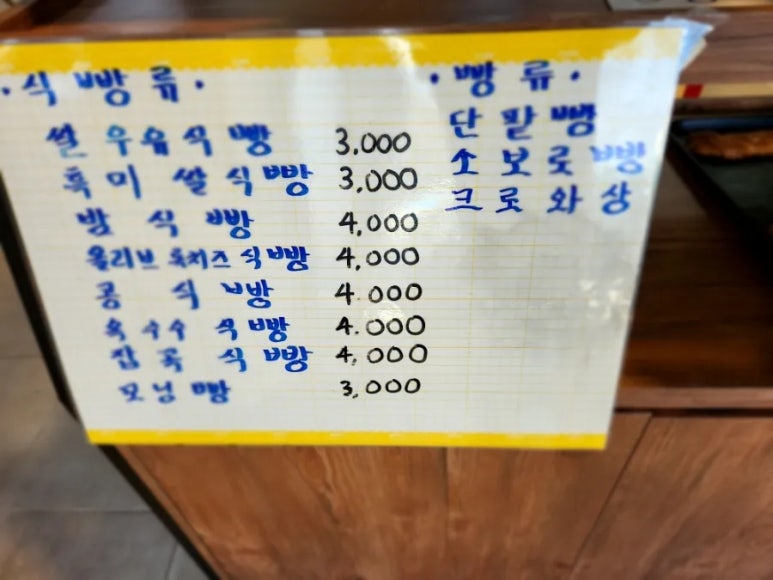 ·식빵류·
쌀우유식빵 3.000
흑미쌀식빵 3,000
밤식빵 4,000
올리브 톡치즈 식빵 4,000
콩식빵 4.000
옥수수 식빵 4.000
잡곡식빵 4,000
모닝빵 3,000
·빵류·
단팥빵
소보롯빵
크로와상